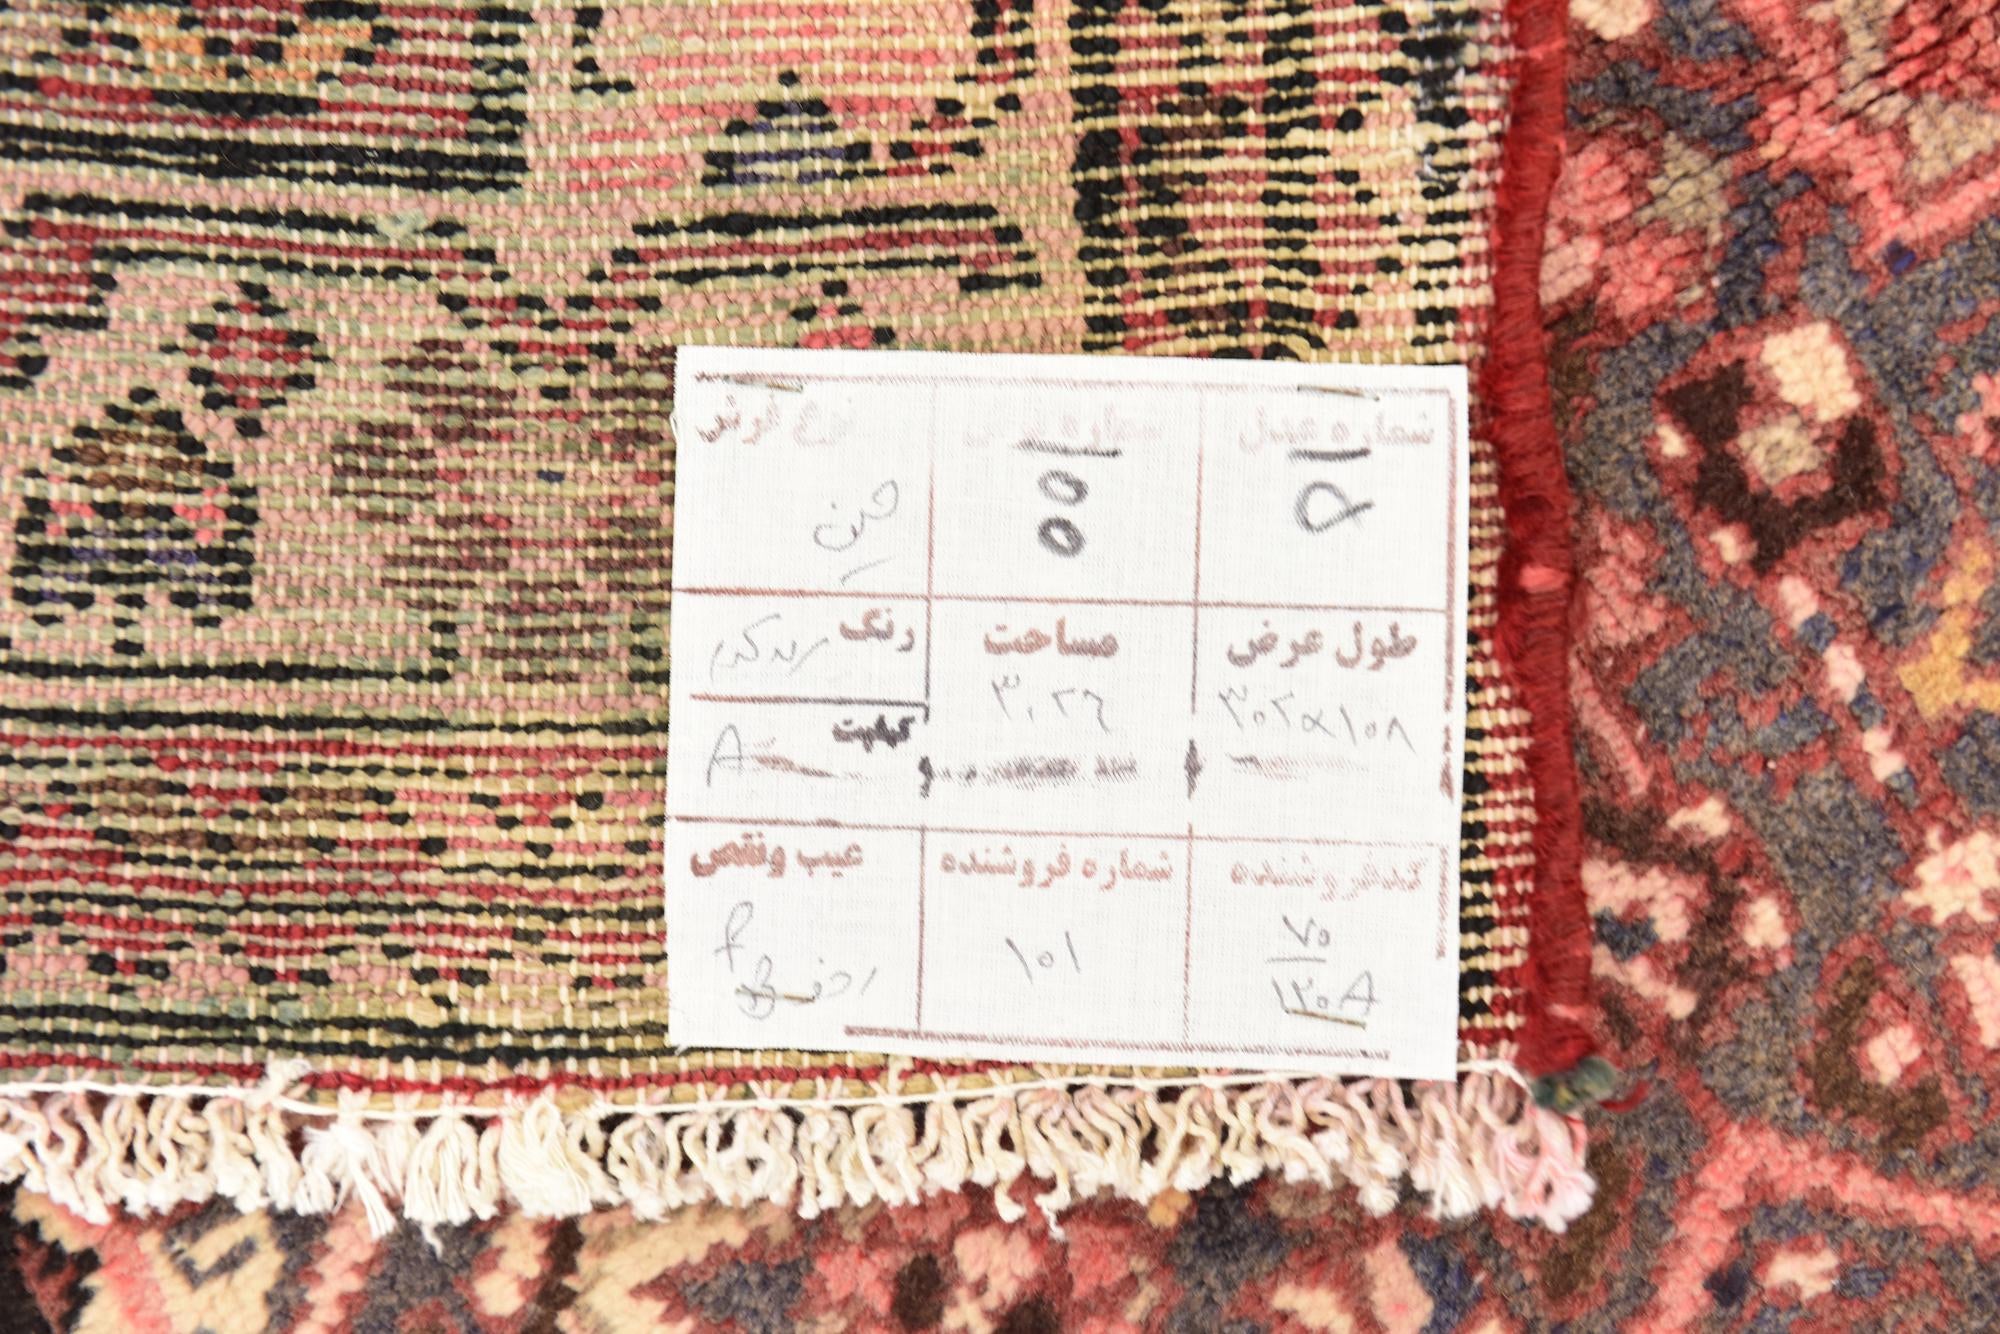 شماره عدل
شماره فرش
نوع فرش
۵
۵۵
طول عرض
مساحت
رنگ
۳۰۲×۱۰۸
۳.۲۶
کیفیت
A
کدفروشنده
شماره فروشنده
عیب ونقص
۷۰
۱۲۰A
۱۰۱